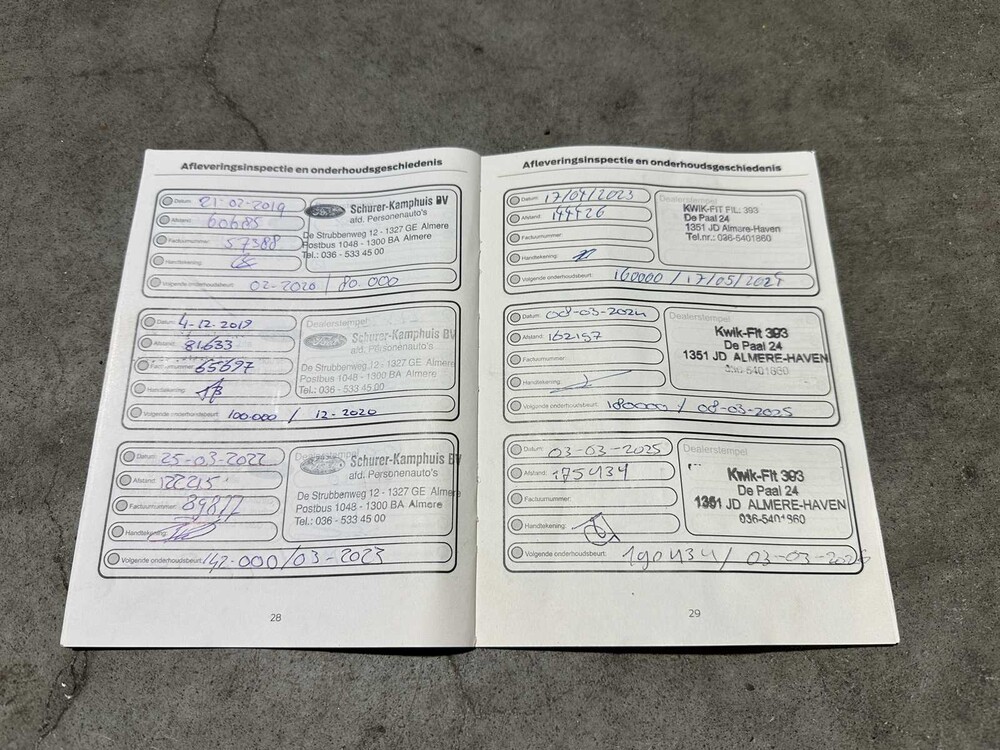 Afleveringsinspectie en onderhoudsgeschiedenis
Datum: 21-02-2019
Afstand: 60685
Factuurnummer: 57388
Handtekening:
Volgende onderhoudsbeurt: 02-2020 / 80.000
Ford
Schurer-Kamphuis BV
afd. Personenauto's
De Strubbenweg 12 - 1327 GE Almere
Postbus 1048 - 1300 BA Almere
Tel.: 036 - 533 45 00
Datum: 4-12-2019
Afstand: 81633
Factuurnummer: 65697
Handtekening:
Volgende onderhoudsbeurt: 100.000 / 12-2020
Dealerstempel:
Ford
Schurer-Kamphuis BV
afd. Personenauto's
De Strubbenweg 12 - 1327 GE Almere
Postbus 1048 - 1300 BA Almere
Tel.: 036 - 533 45 00
Datum: 25-03-2022
Afstand: 122215
Factuurnummer: 89877
Handtekening:
Volgende onderhoudsbeurt: 142.000 / 03-2023
Schurer-Kamphuis BV
afd. Personenauto's
De Strubbenweg 12 - 1327 GE Almere
Postbus 1048 - 1300 BA Almere
Tel.: 036 - 533 45 00
28
Afleveringsinspectie en onderhoudsgeschiedenis
Datum: 17/04/2023
Afstand: 144426
Factuurnummer:
Handtekening:
Volgende onderhoudsbeurt: 160000 /
KWIK-FIT FIL. 393
De Paal 24
1351 JD Almere-Haven
Tel.nr.: 036-5401860
Datum: 08-03-2024
Afstand: 162157
Factuurnummer:
Handtekening:
Volgende onderhoudsbeurt: 180000 / 08-03-2025
Dealerstempel:
Kwik-Fit 393
De Paal 24
1351 JD ALMERE-HAVEN
036-5401860
Datum: 03-03-2025
Afstand: 175434
Factuurnummer:
Handtekening:
Volgende onderhoudsbeurt: 190434 / 03-03-2026
Dealerstempel
Kwik-Fit 393
De Paal 24
1351 JD ALMERE-HAVEN
036-5401860
29